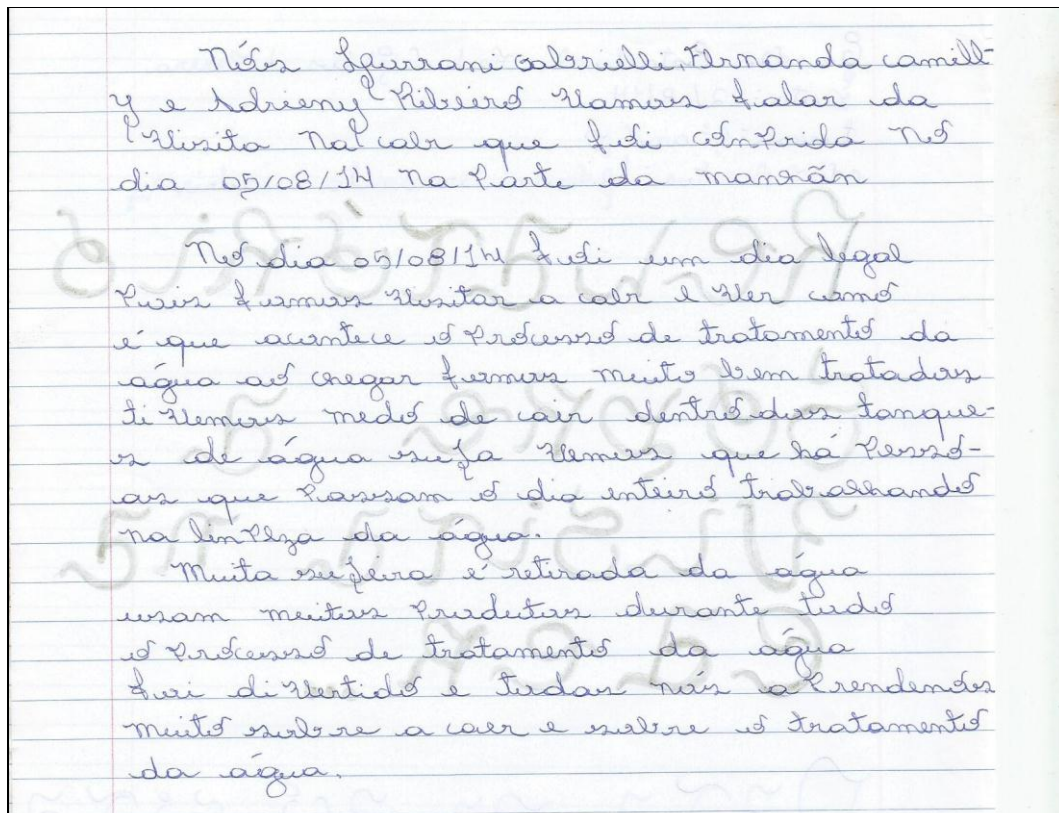 Nós Lhurrani Gabrielle, Fernanda camill-
y e Adrieny Ribeiro vamos falar da
visita na caer que foi conprida no
dia 05/08/14 na parte da manhãn
No dia 05/08/14 foi um dia legal
pois fomos visitar a caer e ver como
é que acontece o processo de tratamento da
água ao chegar fomos muito bem tratados
ti vemos medo de cair dentro dos tanque-
s de água suja vemos que há pesso-
as que passam o dia enteiro trabalhando
na linpeza da água.
Muita sujeira é retirada da água
usam muitos produtos durante tudo
o processo de tratamento da água
foi di vertido e todas nós a prendemos
muito sobre a caer e sobre o tratamento
da água.